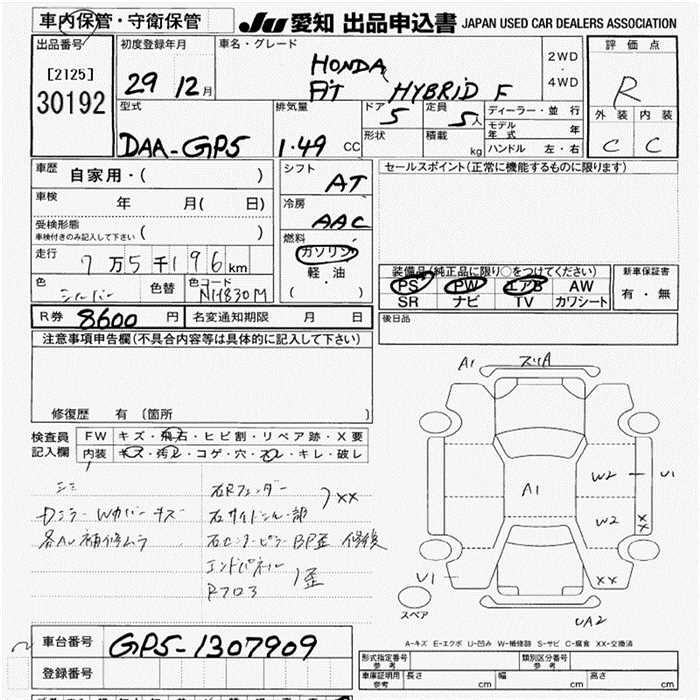 車内保管・守衛保管
JU 愛知 出品申込書 JAPAN USED CAR DEALERS ASSOCIATION
出品番号
[2125]
30192
初度登録年月
29 12月
車名・グレード
HONDA
HYBRID F
2WD
・
4WD
評価点
R
外装 内装
C C
型式
DAA-GP5
排気量
1.49 CC
ドア
5
定員
5人
形状
積載
kg
ディーラー・並行
モデル年式 年
ハンドル 左・右
車歴
自家用・( )
車検
年 月( 日)
受検形態
車検付きのみ記入して下さい
( )
走行
7万5千196km
色
シルバー
色替
色コード
NH830M
シフト
AT
冷房
AAC
燃料
ガソリン
軽・油
( )
セールスポイント(正常に機能するものに限ります)
装備品(純正品に限り○をつけてください)
PS PW エアB AW
SR ナビ TV カワシート
新車保証書
有・無
後日品
R券 8600 円
名変通知期限 月 日
注意事項申告欄(不具合内容等は具体的に記入して下さい)
修復歴 有 (箇所 )
検査員
記入欄
FW キズ・飛石・ヒビ割・リペア跡・X要
内装 キズ・汚レ・コゲ・穴・スレ・キレ・破レ
シミ
右Rフェンダー
XX
Dミラー Wカバー キズ
右サイドシル部
各AW補修ムラ
右センターピラー BP歪 修後
エンドパネル
歪
Rフロア
A1
スリA
A1
W2
U1
W2
XX
U1
XX
スペア
UA2
A-キズ E-エクボ U-凹み W-補修跡 S-サビ C-腐食 XX-交換済
車台番号
GP5-1307909
登録番号
形式指定番号
参考
類別区分番号
参考
車庫証明用
参考
長さ cm
幅 cm
高さ cm